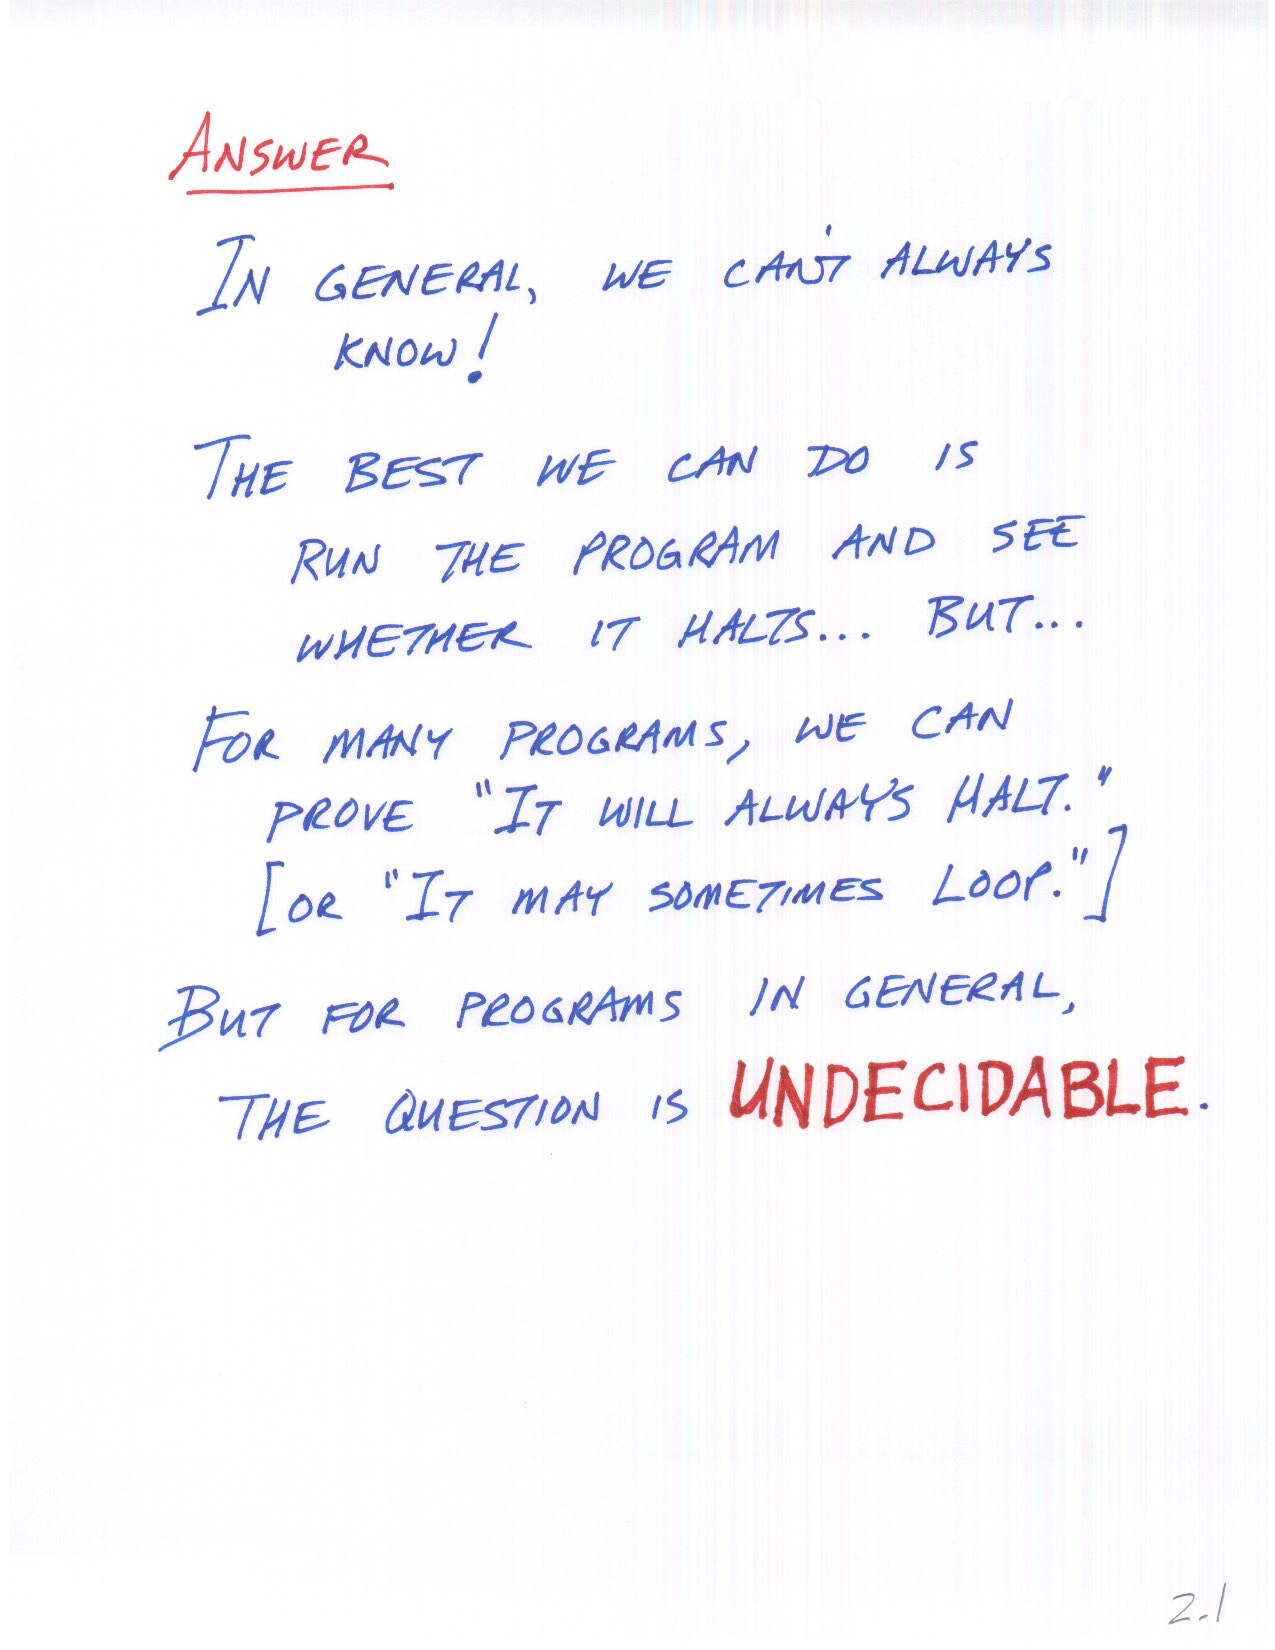 ANSWER
IN GENERAL, WE CAN'T ALWAYS
KNOW!
THE BEST WE CAN DO IS
RUN THE PROGRAM AND SEE
WHETHER IT HALTS... BUT...
FOR MANY PROGRAMS, WE CAN
PROVE "IT WILL ALWAYS HALT."
[OR "IT MAY SOMETIMES LOOP."]
BUT FOR PROGRAMS IN GENERAL,
THE QUESTION IS UNDECIDABLE.
2.1